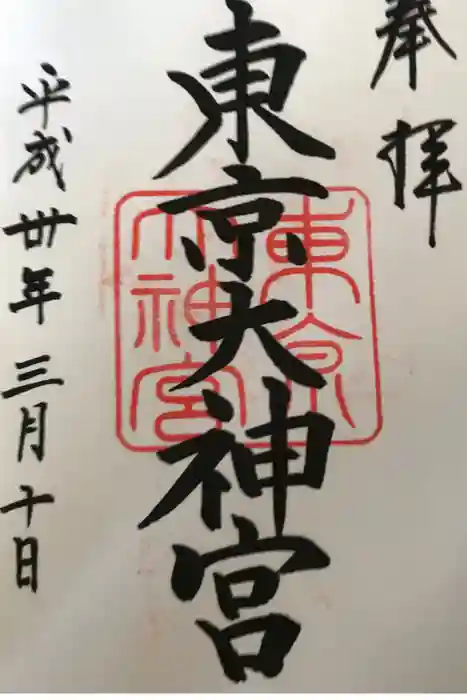 奉拝
東京大神宮
東京
大神宮
平成卅年三月十日